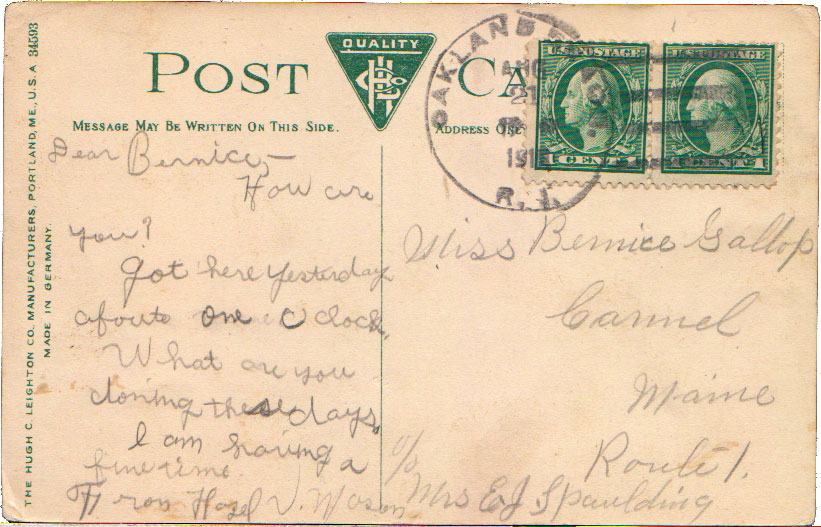 POST CA
QUALITY
MESSAGE MAY BE WRITTEN ON THIS SIDE.
ADDRESS ONL
THE HUGH C. LEIGHTON CO. MANUFACTURERS, PORTLAND, ME., U.S.A 34593
MADE IN GERMANY.
OAKLAND
21
191
R. I.
U.S. POSTAGE
1 CENT 1
U.S. POSTAGE
1 CENTS 1
Dear Bernice,—
How are
you?
Got here yesterday
aboute one O clock.
What are you
doning these days.
I am having a
fine time.
From Hazel V.
Miss Bernice Gallop
Carmel
Maine
Route 1.
c/o Mrs E J Spaulding